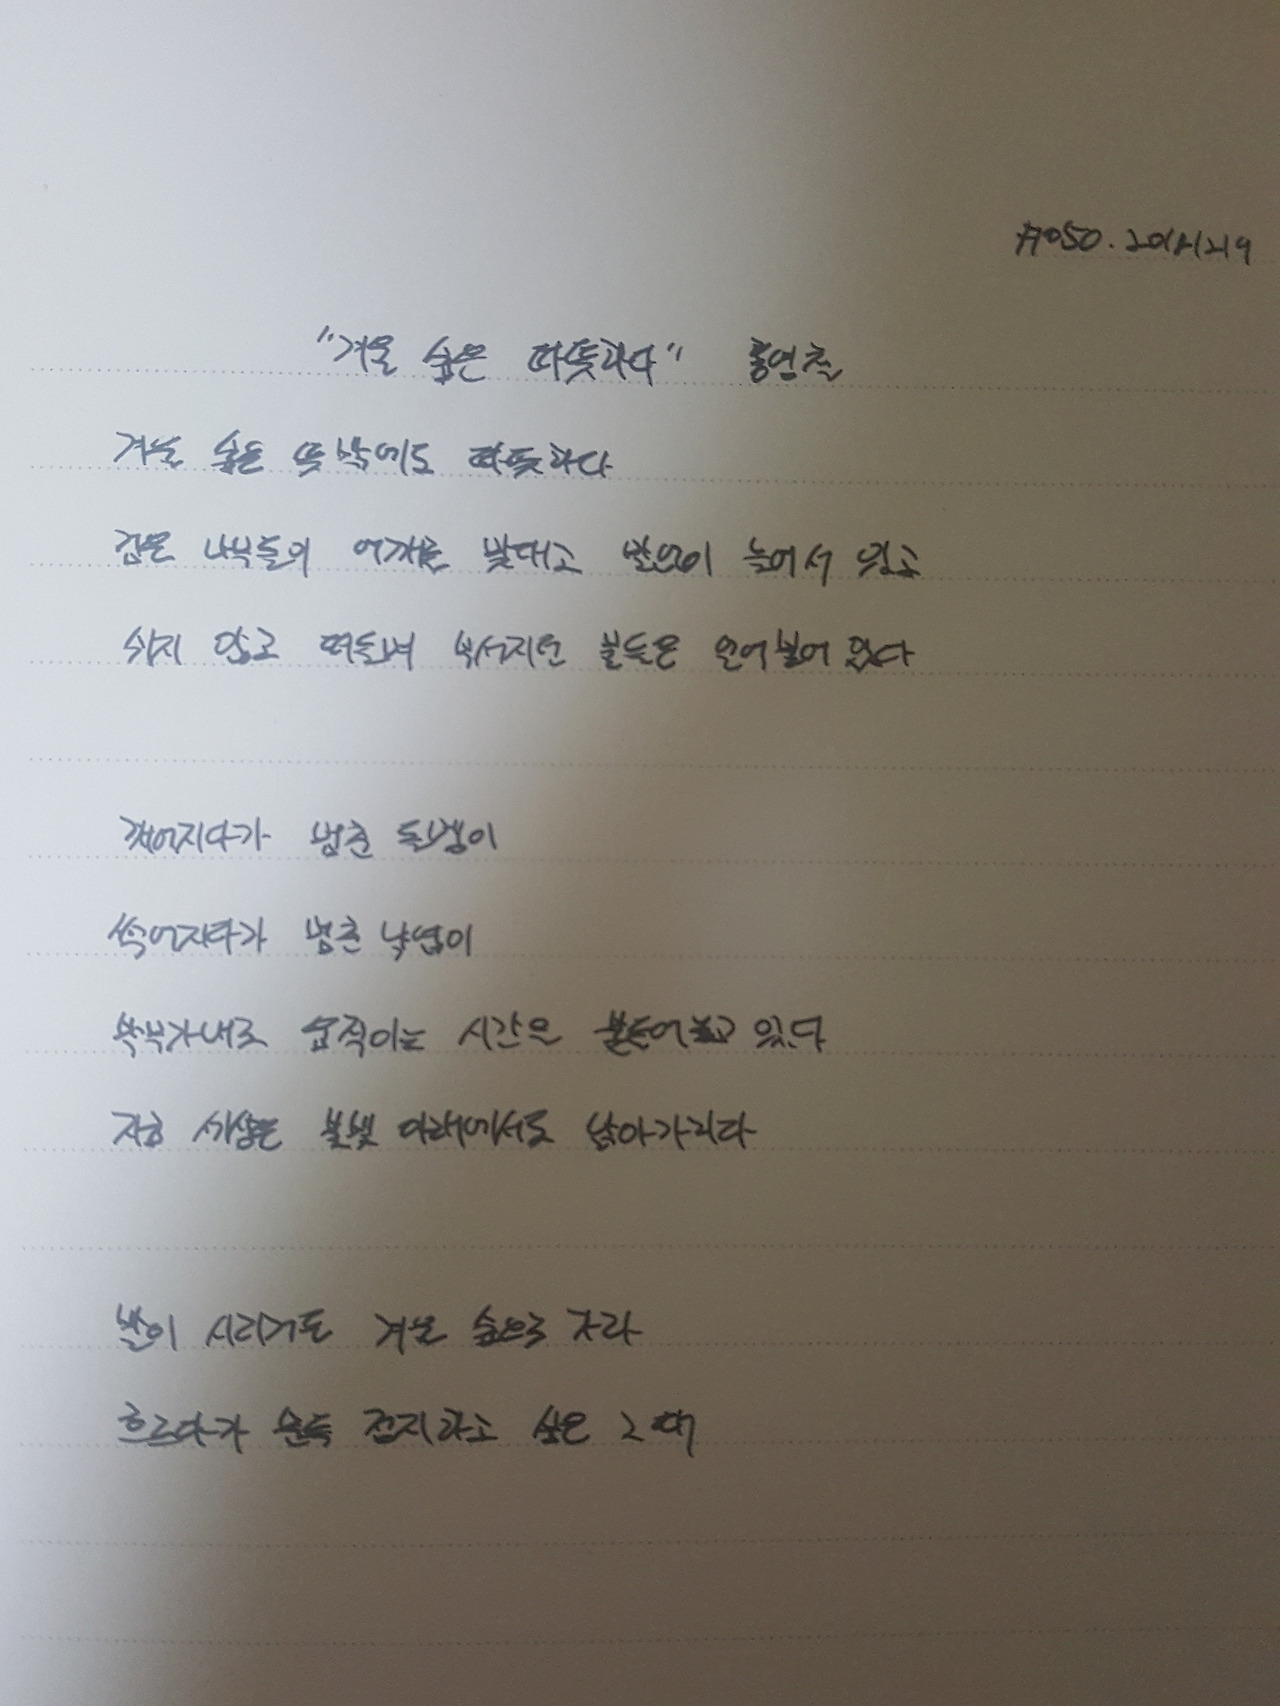 #050. 20181219
"겨울 숲은 따뜻하다" 홍영철
겨울 숲은 뜻밖에도 따뜻하다
검은 나무들이 어깨를 맞대고 말없이 늘어서 있고
쉬지 않고 떠들며 부서지던 물들은 얼어붙어 있다
깨어지다가 멈춘 돌멩이
썩어지다가 멈춘 낙엽이
막무가내로 움직이는 시간을 붙들어 놓고 있다
지금 세상은 불빛 아래에서도 낡아가리라
발이 시리거든 겨울 숲으로 가라
흐르다가 문득 정지하고 싶은 그때